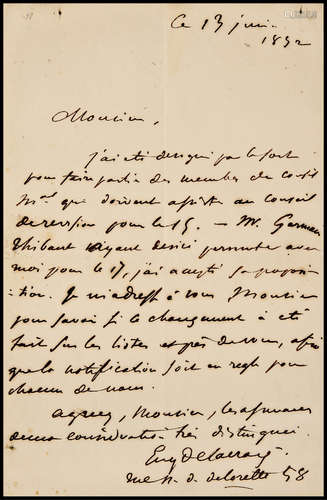 Ce 13 juin
1852
Monsieur,
j'ai été designé par le sort
pour faire partie des membres du conseil
Mpal que doivent assister au conseil
de revision pour le 15. — M. Germain
Thibaut ayant desiré permuter avec
moi pour le 17, j'ai accepté sa proposi
-tion. Je m'adresse à vous Monsieur
pour savoir si le changement a été
fait sur les listes et près de vous, afin
que la notification soit en regle pour
chacun de nous.
Agreez, Monsieur, les assurances
de ma consideration très distinguée.
Eug Delacroix
rue n. d. de lorette 58